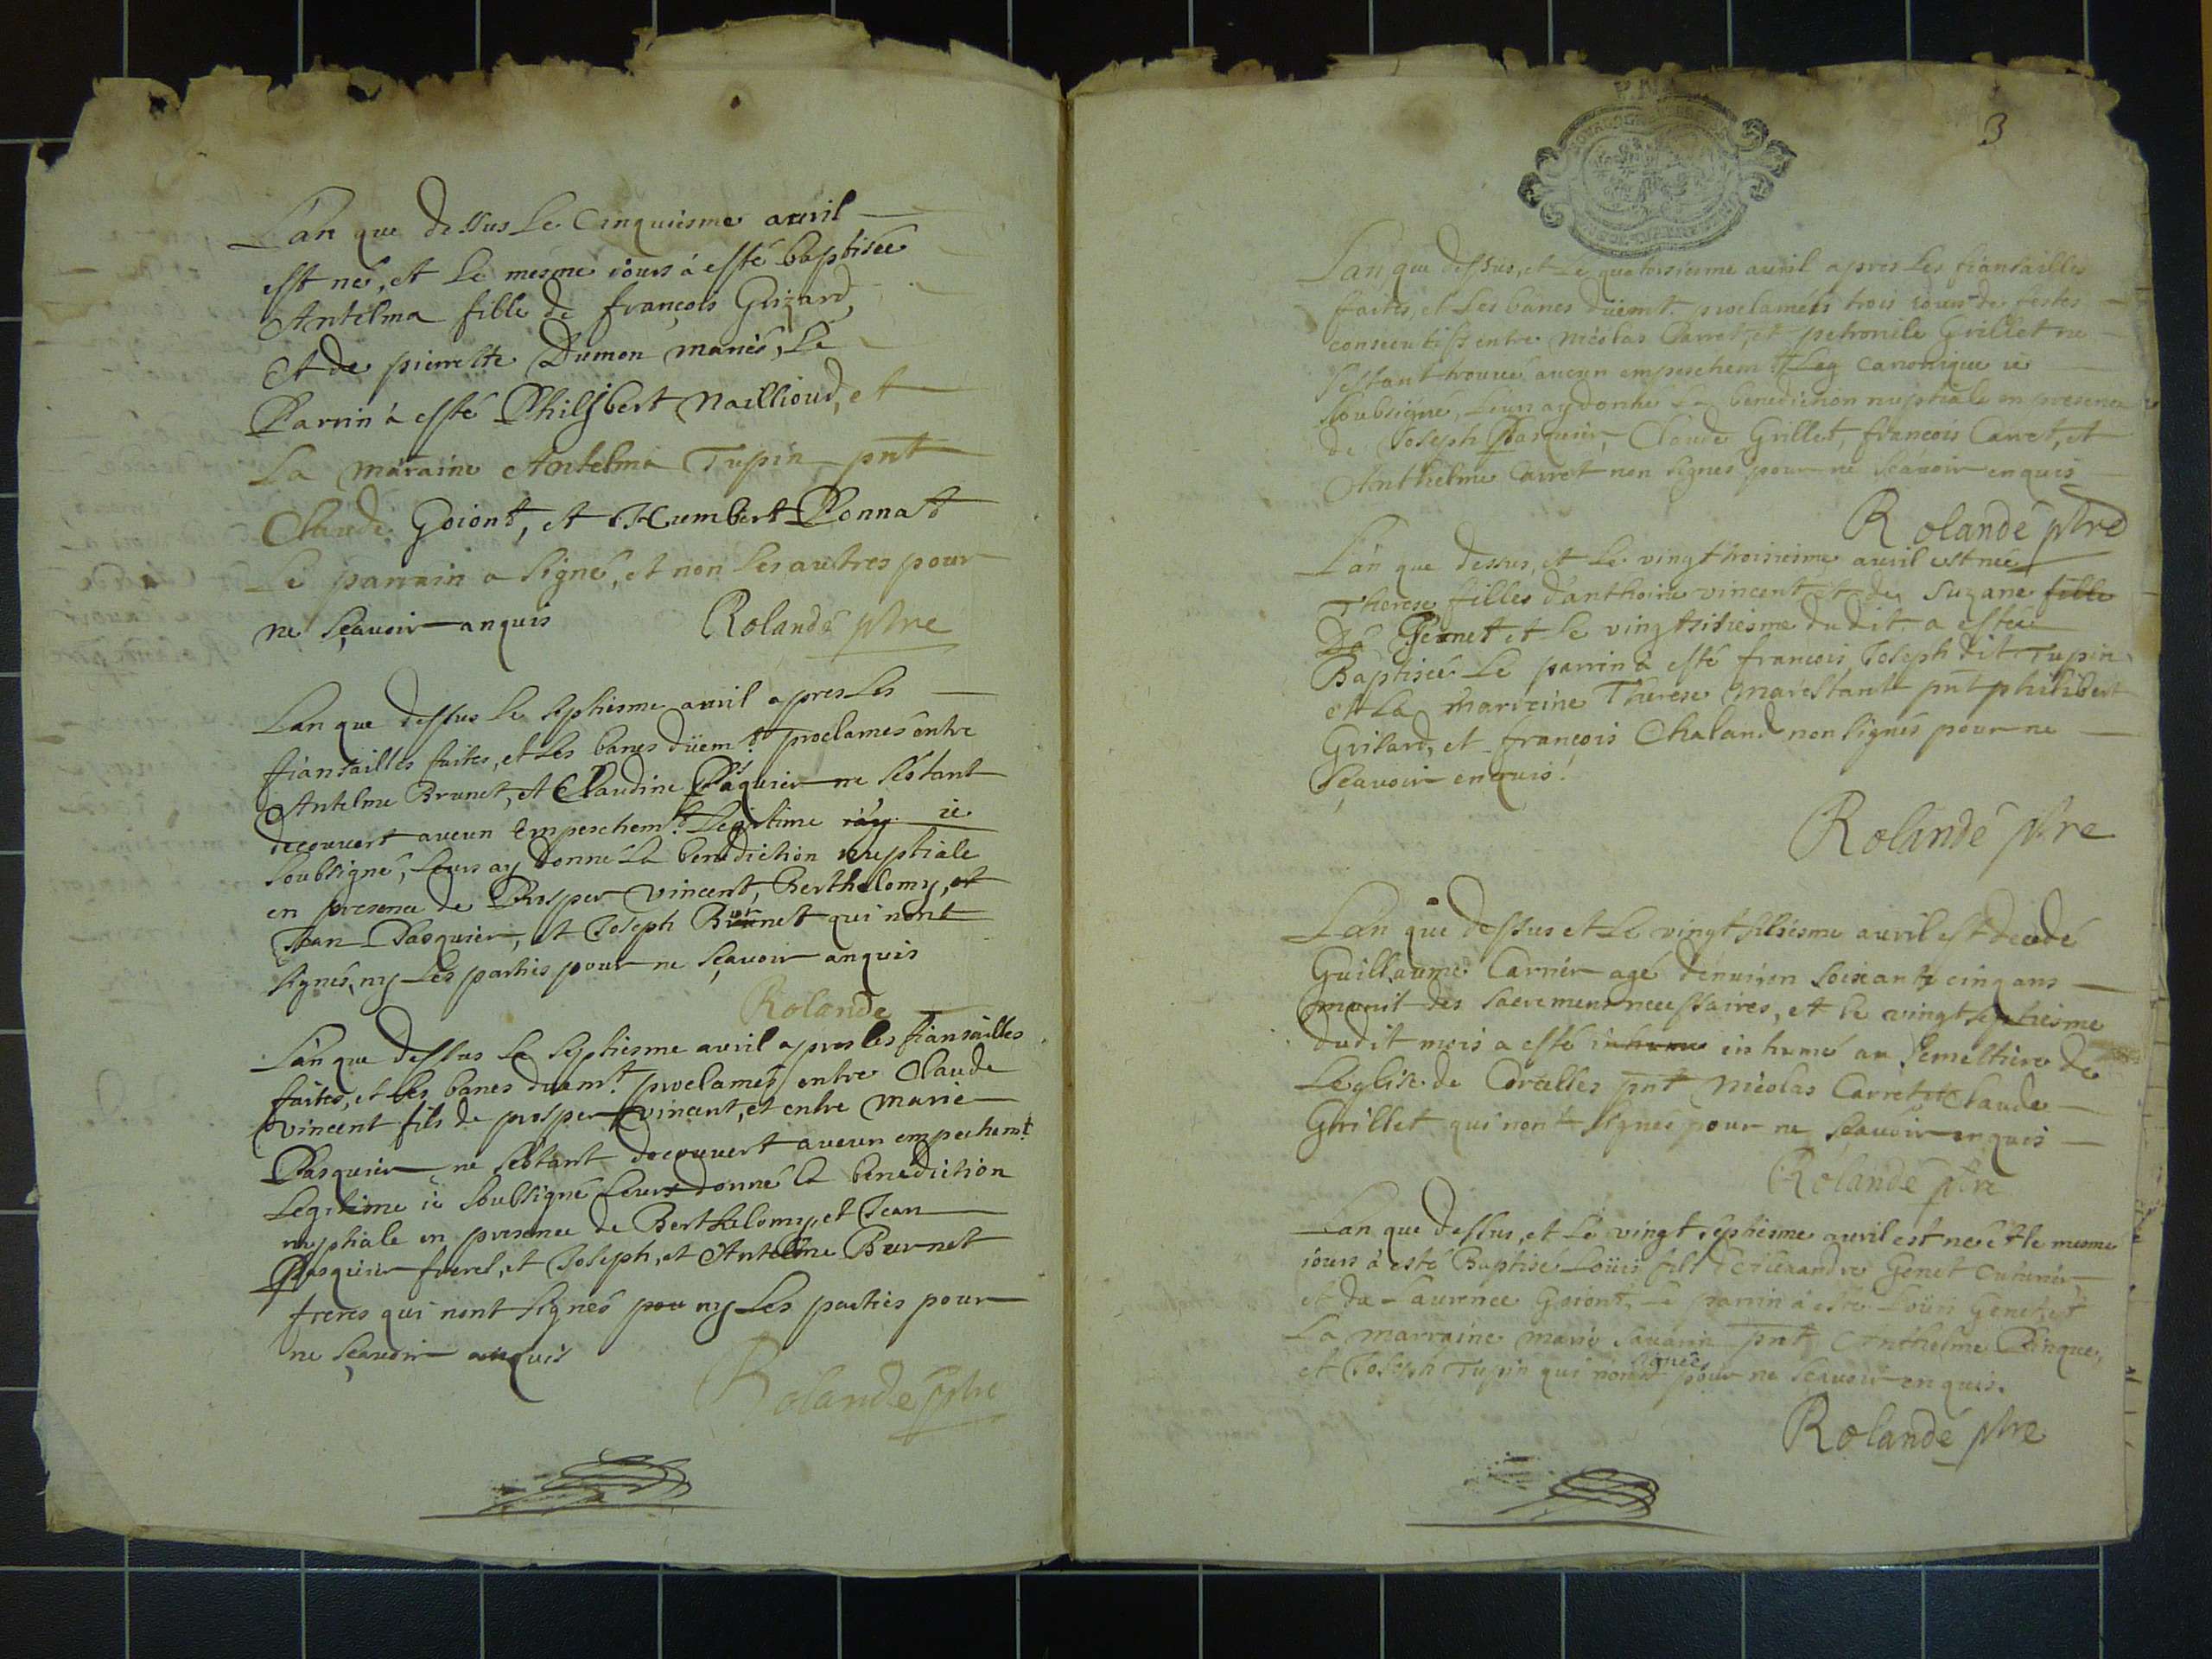 L'an que dessus le Cinquiesme avril
est neé, et le mesme iours a esté baptiseé
Antelma fille de françois Grizard,
et de pierrette Dumon mariés, le
Parrin à esté Philibert Naillioud, et
La maraine Antelma Tupin pnt
Claude Goiont, et Humbert Ponnast
Le parrain a signé, et non les autres pour
ne sçavoir anquis Rolandé ptre
Lan que dessus le septiesme avril apres les
fiansailles faites, et les bancs düemt. proclamés entre
Antelme Brunet, et Claudine Pasquier ne sestant
decouvert aucun Empeschemt. Legitime iay ie
soubsigné, leurs ay donné la benediction nuptiale
en presence de Prosper vincent, Berthelomy, et
Jean Pasquier, et Joseph Burnet qui nont
signés, ny les parties pour ne sçavoir anquis
Rolandé
L'an que dessus le septiesme avril apres les fiansailles
faites, et les bancs duemt. proclamés entre Claude
vincent fils de prosper vincent, et entre marie
Pasquier ne sestant decouvert aucun empechemt.
Legitime ie soubsigné leurs donné la benediction
nuptiale en presence de Berthelomy, et Jean
Pasquier freres, et Joseph, et Antelme Burnet
freres qui nont signés pou ny les parties pour
ne sçavoir anquis
Rolandé ptre
3
L'an que dessus, et le quatorsiesme avril apres les fiansailles
faites, et les bancs düemt. proclamées trois iours de festes
consecutifs entre nicolas Carret, et petronile Grillet ne
sestant trouvé aucun empeschemt. Leg canonique ie
soubsigné, leurs ay donné la benediction nuptiale en presence
de Joseph Pasquier, Claude Grillet, françois Carret, et
Anthelme Carret non signés pour ne sçavoir enquis
Rolandé ptre
L'an que dessus, et le vingttroisiesme avril est neé
Therese filles d'anthoine vincent et de Suzane fille
De Genet et le vingtsisiesme dudit a esteé
Baptiseé le parrin à esté françois Joseph dit Tupin
et la marraine Therese marestant pnt philibert
Grisard, et françois Chaland non signés pour ne
sçavoir enquis.
Rolandé ptre
L'an que dessus et le vingt sisiesme avril est decedé
Guillaume Carrier agé d'enuiron soixante cinq ans
munit des sacremens necessaires, et le vingtseptiesme
dudit mois a esté inhume inhumé au semestiere de
Leglise de Corcelles pnt Nicolas Carret et Claude
Grillet qui nont signés pour ne sçavoir enquis
Rolandé ptre
L'an que dessus, et le vingt septiesme avril est neé et le mesme
iours à esté Baptisé Loüis fils d'Alexandre Genet Cuturier
et de Laurence Goiont, le parrin à esté Loüis Genet, et
La marraine marie savarin pnt, Anthelme Pinque,
et Joseph Tupin qui nont signés pour ne sçavoir enquis.
Rolandé ptre